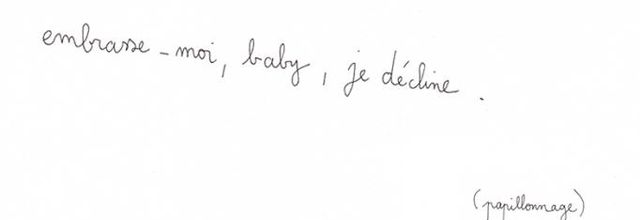 embrasse-moi, baby, je décline.
(papillonnage)